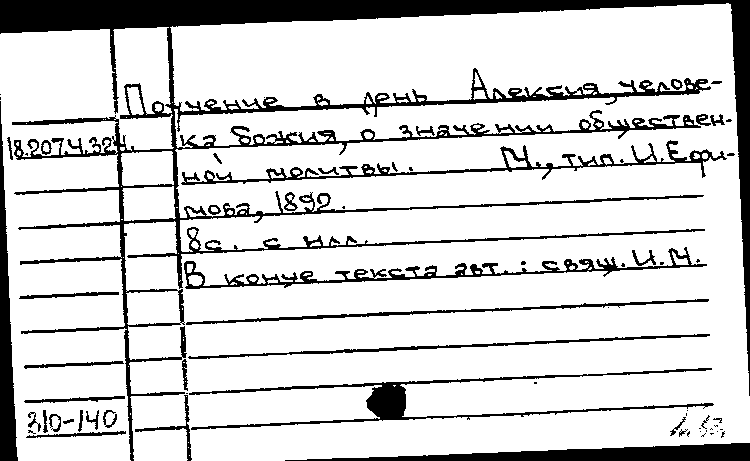 Поучение в день Алексия, челове-
18.207.4.324. ка божия, о значении обществен-
ной молитвы. М., тип. И. Ефи-
мова, 1890.
8с. с илл.
В конце текста авт.: свящ. И.М.
310-140